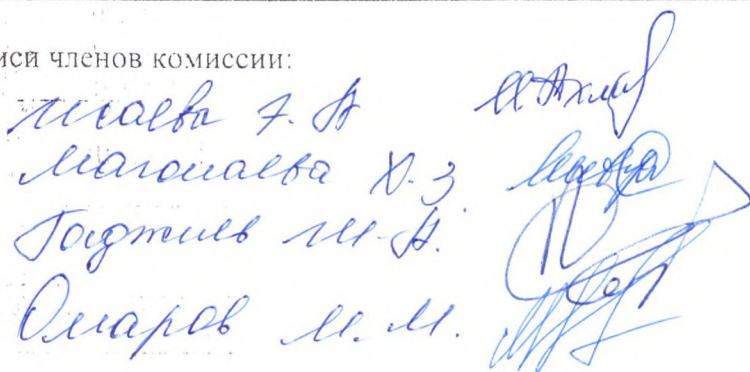 иси членов комиссии:
Исаева З. А
Магомаева Х. З
Гаджиев М. А.
Омаров М. М.